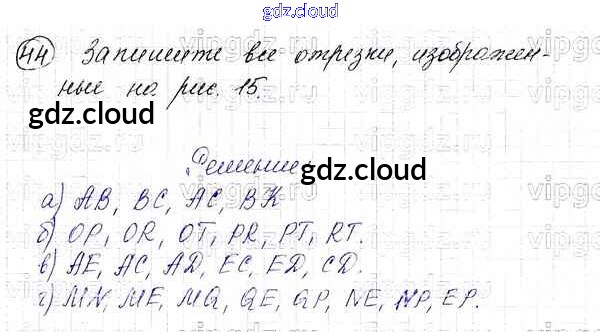 gdz.cloud
44 Запишите все отрезки, изображен-
ные на рис. 15.
gdz.cloud
gdz.cloud
Решение
а) AB, BC, AC, BK
б) OP, OR, OT, PR, PT, RT.
в) AE, AC, AD, EC, ED, CD.
г) MN, ME, MQ, QE, QP, NE, NP, EP.
gdz.cloud